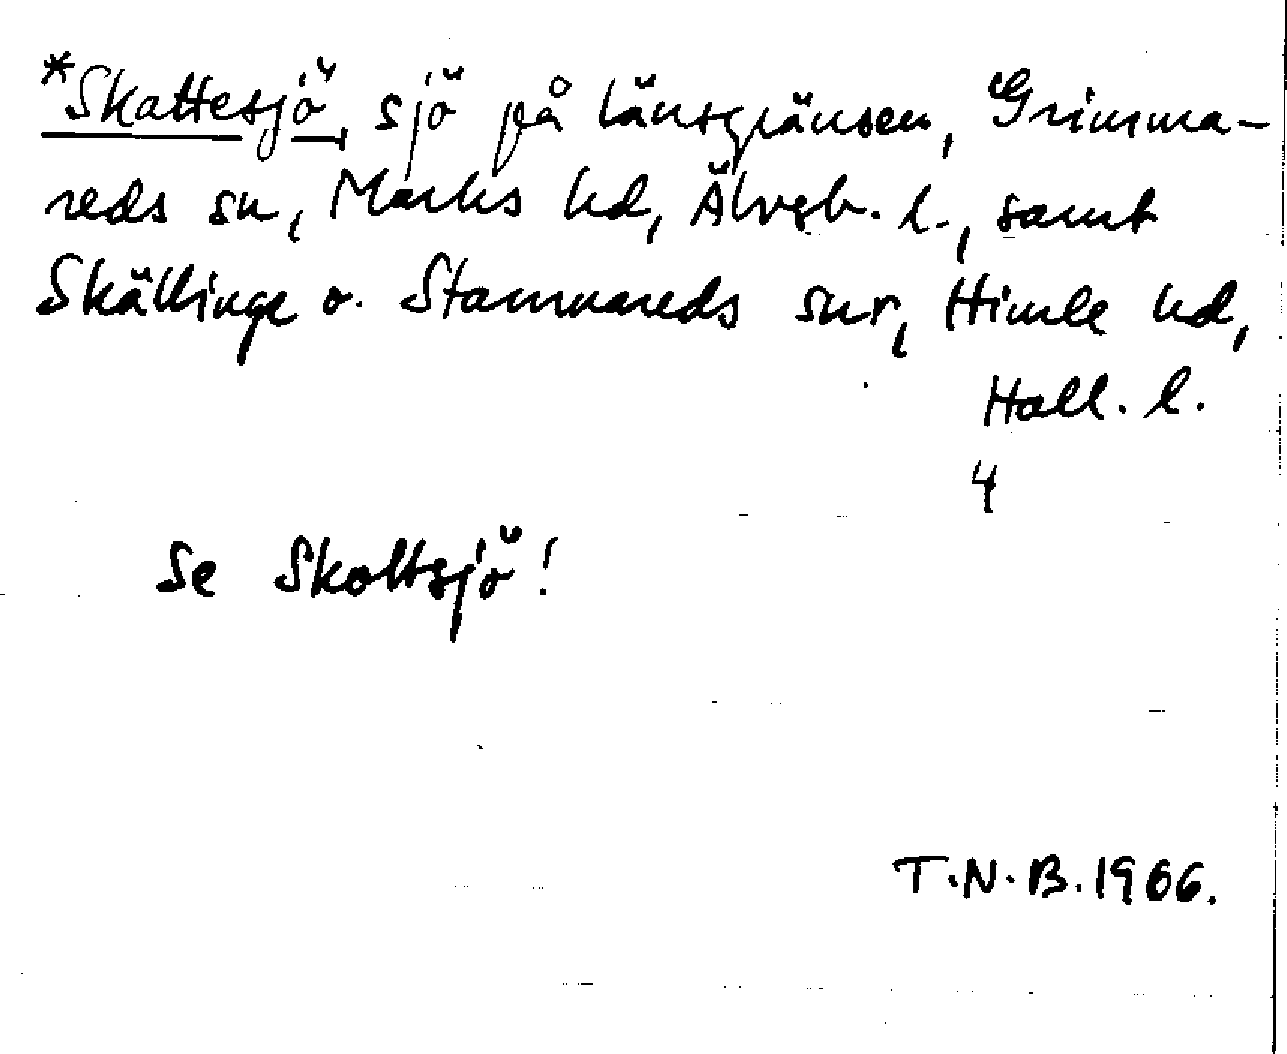 *Skattesjö, sjö på länsgränsen, Grimma-
reds sn, Marks hd, Älvsb. l., samt
Skällinge o. Stamnareds snr, Himle hd,
Hall. l.
4
Se Skottsjö!
T.N.B. 1966.